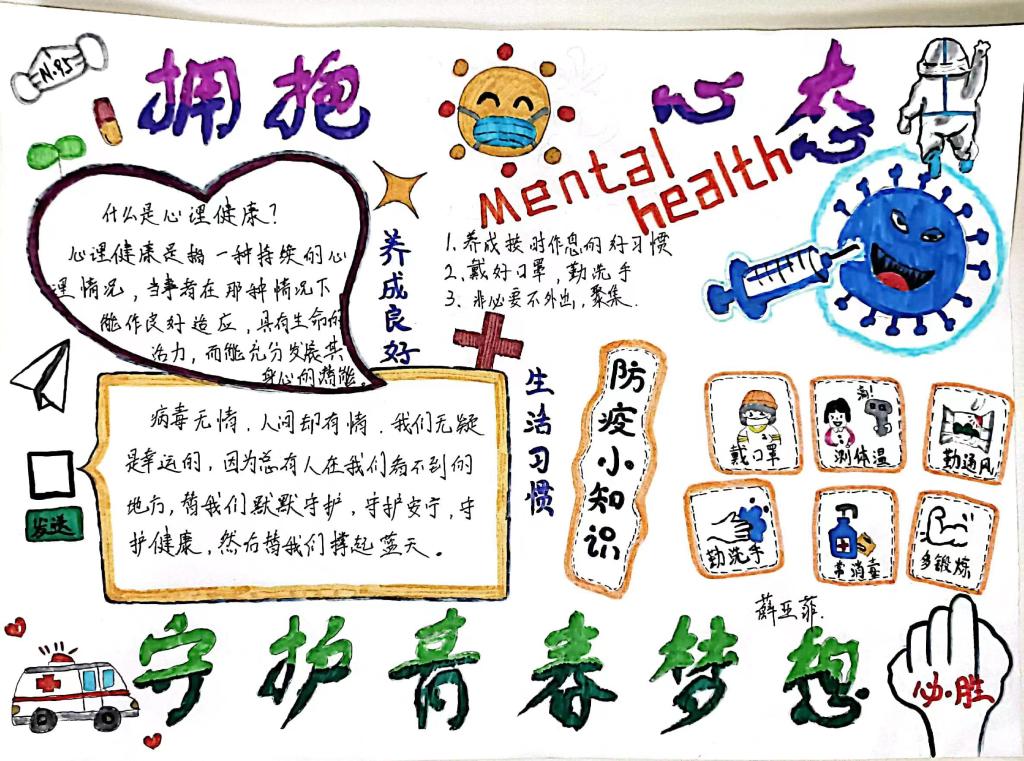 N95
拥抱
心态
Mental
health
什么是心理健康？
心理健康是指一种持续的心
理情况，当事者在那种情况下
能作良好适应，具有生命的
活力，而能充分发展其
身心的潜能。
养成良好
生活习惯
1. 养成按时作息的好习惯
2. 戴好口罩，勤洗手
3. 非必要不外出，聚集.
病毒无情，人间却有情，我们无疑
是幸运的，因为总有人在我们看不到的
地方，替我们默默守护，守护安宁，守
护健康，然后替我们撑起蓝天。
发送
防疫小知识
戴口罩
测体温
勤通风
勤洗手
常消毒
多锻炼
薛亚菲.
守护青春梦想
必胜